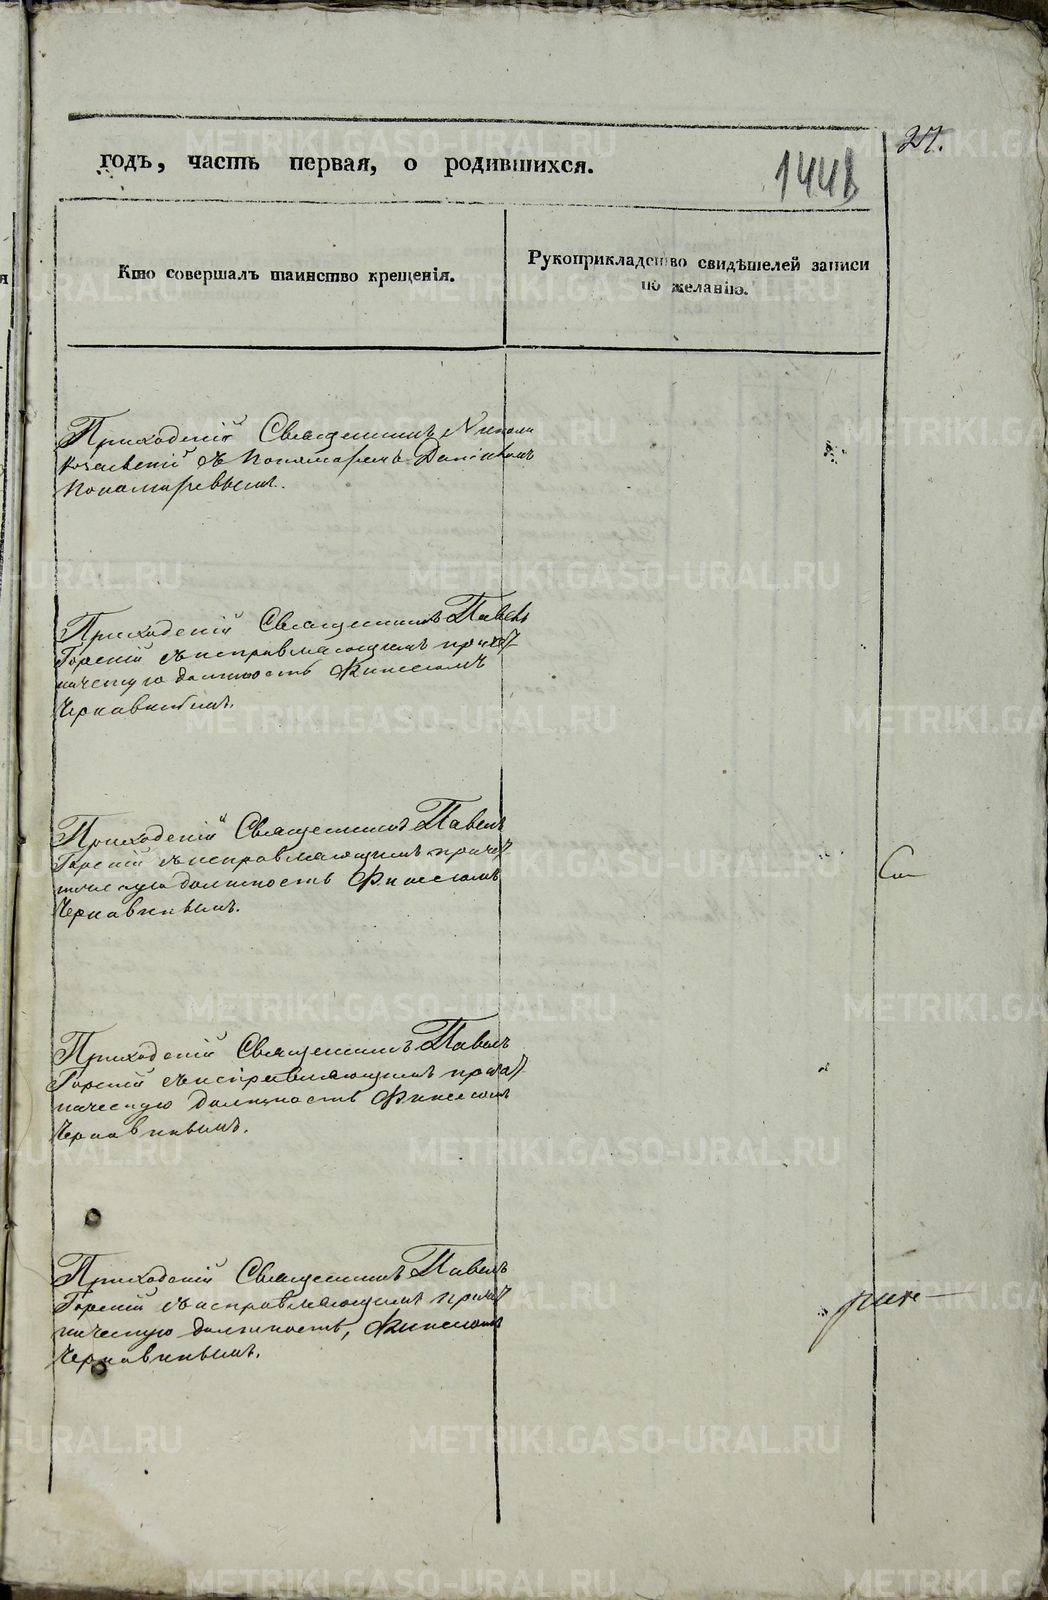 27.
годъ, часть первая, о родившихся.
1448
Кто совершалъ таинство крещенія.
Рукоприкладство свидѣтелей записи
по желанію.
Приходскій Священникъ Николай
съ Пономаремъ
Пономаревымъ.
Приходскій Священникъ Павелъ
Горскій съ исправляющимъ причет
ническую должность Финесомъ
Чернавинымъ.
Приходскій Священникъ Павелъ
Горскій съ исправляющимъ причет
ническую должность Финесомъ
Чернавинымъ.
Приходскій Священникъ Павелъ
Горскій съ исправляющимъ причет
ническую должность Финесомъ
Чернавинымъ.
Приходскій Священникъ Павелъ
Горскій съ исправляющимъ причет
ническую должность, Финесомъ
Чернавинымъ.
METRIKI.GASO-URAL.RU